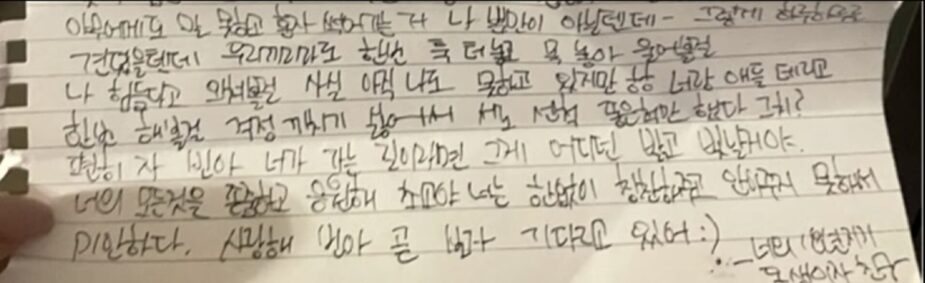 아무에게도 말 못하고 혼자 썩어가는 거 나 뿐만이 아닐텐데- 그렇게 하루하루
견뎠을텐데 우리끼리라도 한번 툭 터놓고 목 놓아 울어볼걸
나 힘들다고 외쳐볼걸 사실 아직 나도 못하고 있지만 항상 너랑 애들 데리고
한번 해볼걸 걱정 끼치기 싫어서 서로 삼켜 만 했다 그치?
단단히 자 빈아 너가 가는 길이라면 그게 어디던 밝고 빛날거야.
너의 모든것을 존중하고 응원해 최고야 너는 한없이 칭찬해주고 안아주지 못해서
미안하다. 사랑해 빈아 곧 보자 기다리고 있어:)
- 너의
친구